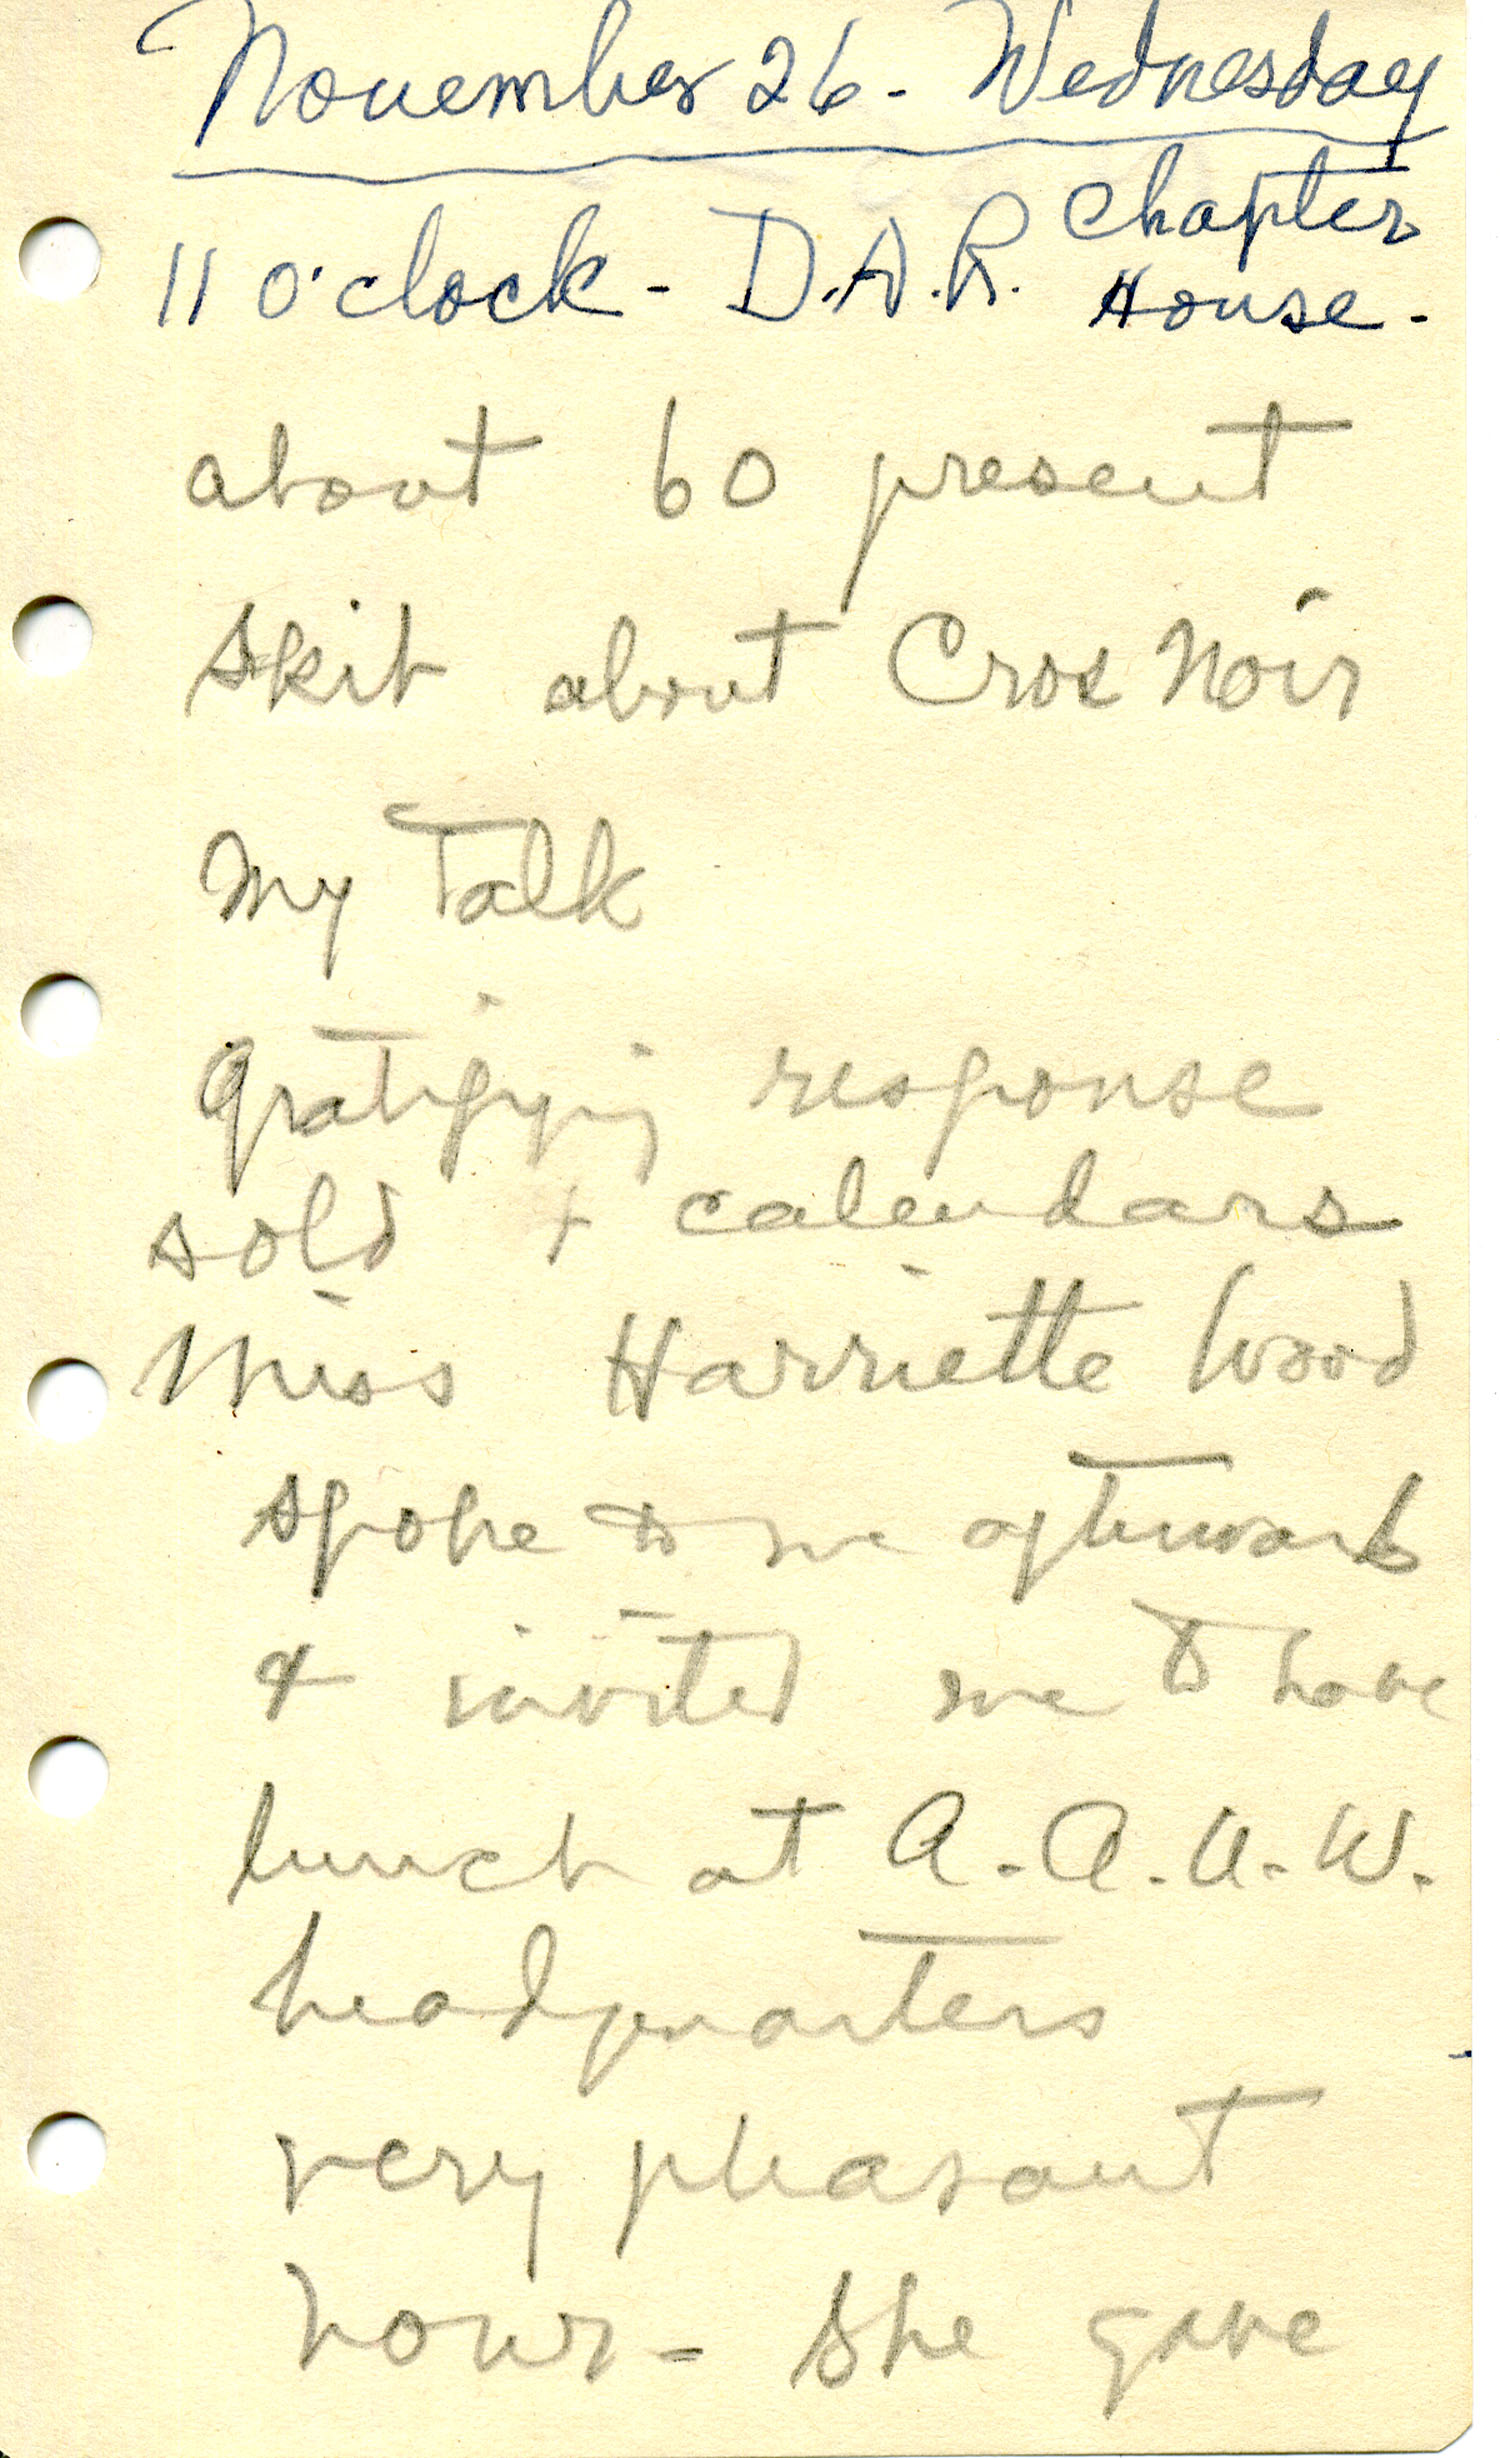 November 26 - Wednesday
11 o'clock - D.A.R. Chapter
House -
about 60 present
skit about Cros Noir
My Talk
Gratifying response
sold + calendars
Miss Harriette Wood
spoke to me afterward
& invited me to have
lunch at A.A.U.W.
headquarters
very pleasant
hour - She gave